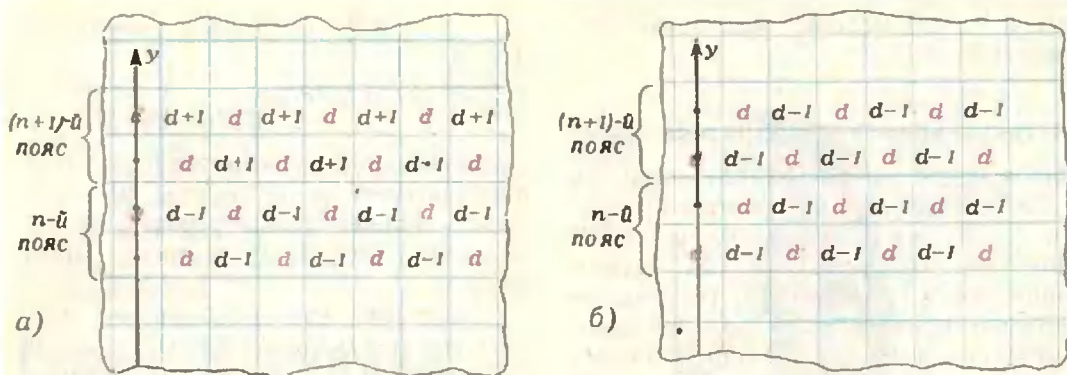 y
(n+1)-й
пояс
d d+1 d d+1 d d+1 d d+1
d d+1 d d+1 d d+1 d
n-й
пояс
d-1 d d-1 d d-1 d d-1
d d-1 d d-1 d d-1 d
а)
y
(n+1)-й
пояс
d d-1 d d-1 d d-1
d d-1 d d-1 d d-1 d
n-й
пояс
d d-1 d d-1 d d-1
d d-1 d d-1 d d-1 d
б)